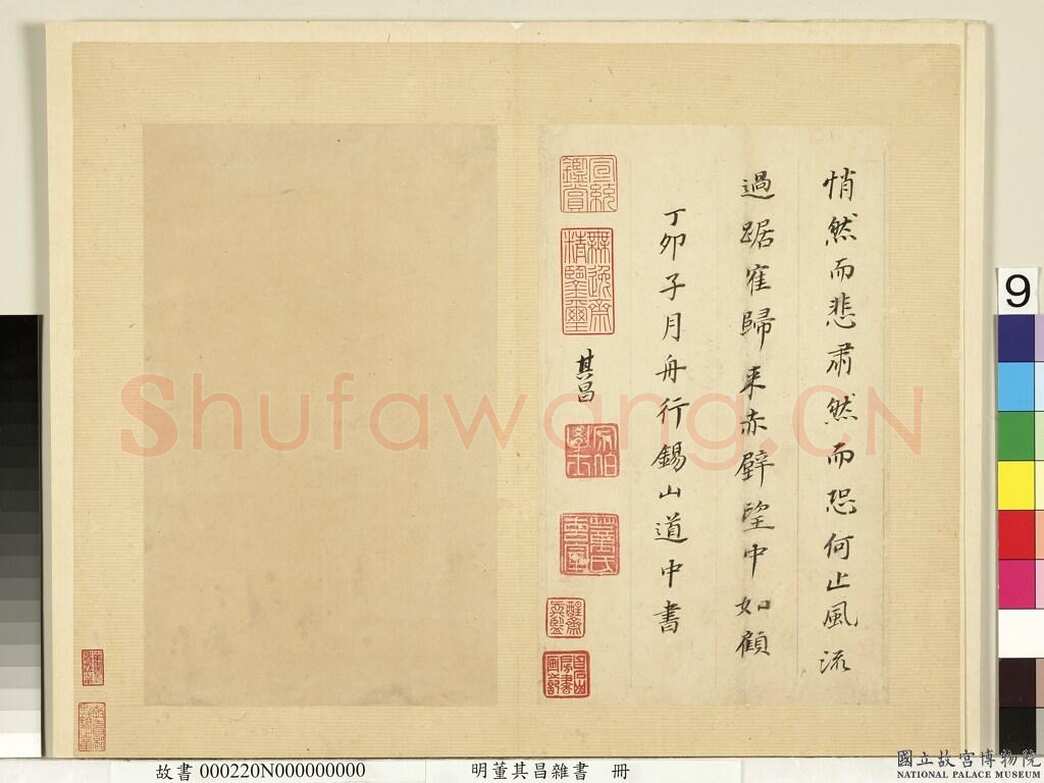 悄然而悲肅然而恐何止風流
過踞寉歸来赤壁望中如顧
丁夘子月舟行錫山道中書
宣統鑑賞
無逸齋精鑒璽
其昌
宗伯學士
董氏玄宰
Shufawang.CN
9
故書 000220N000000000 明董其昌雜書 冊
國立故宮博物院
NATIONAL PALACE MUSEUM